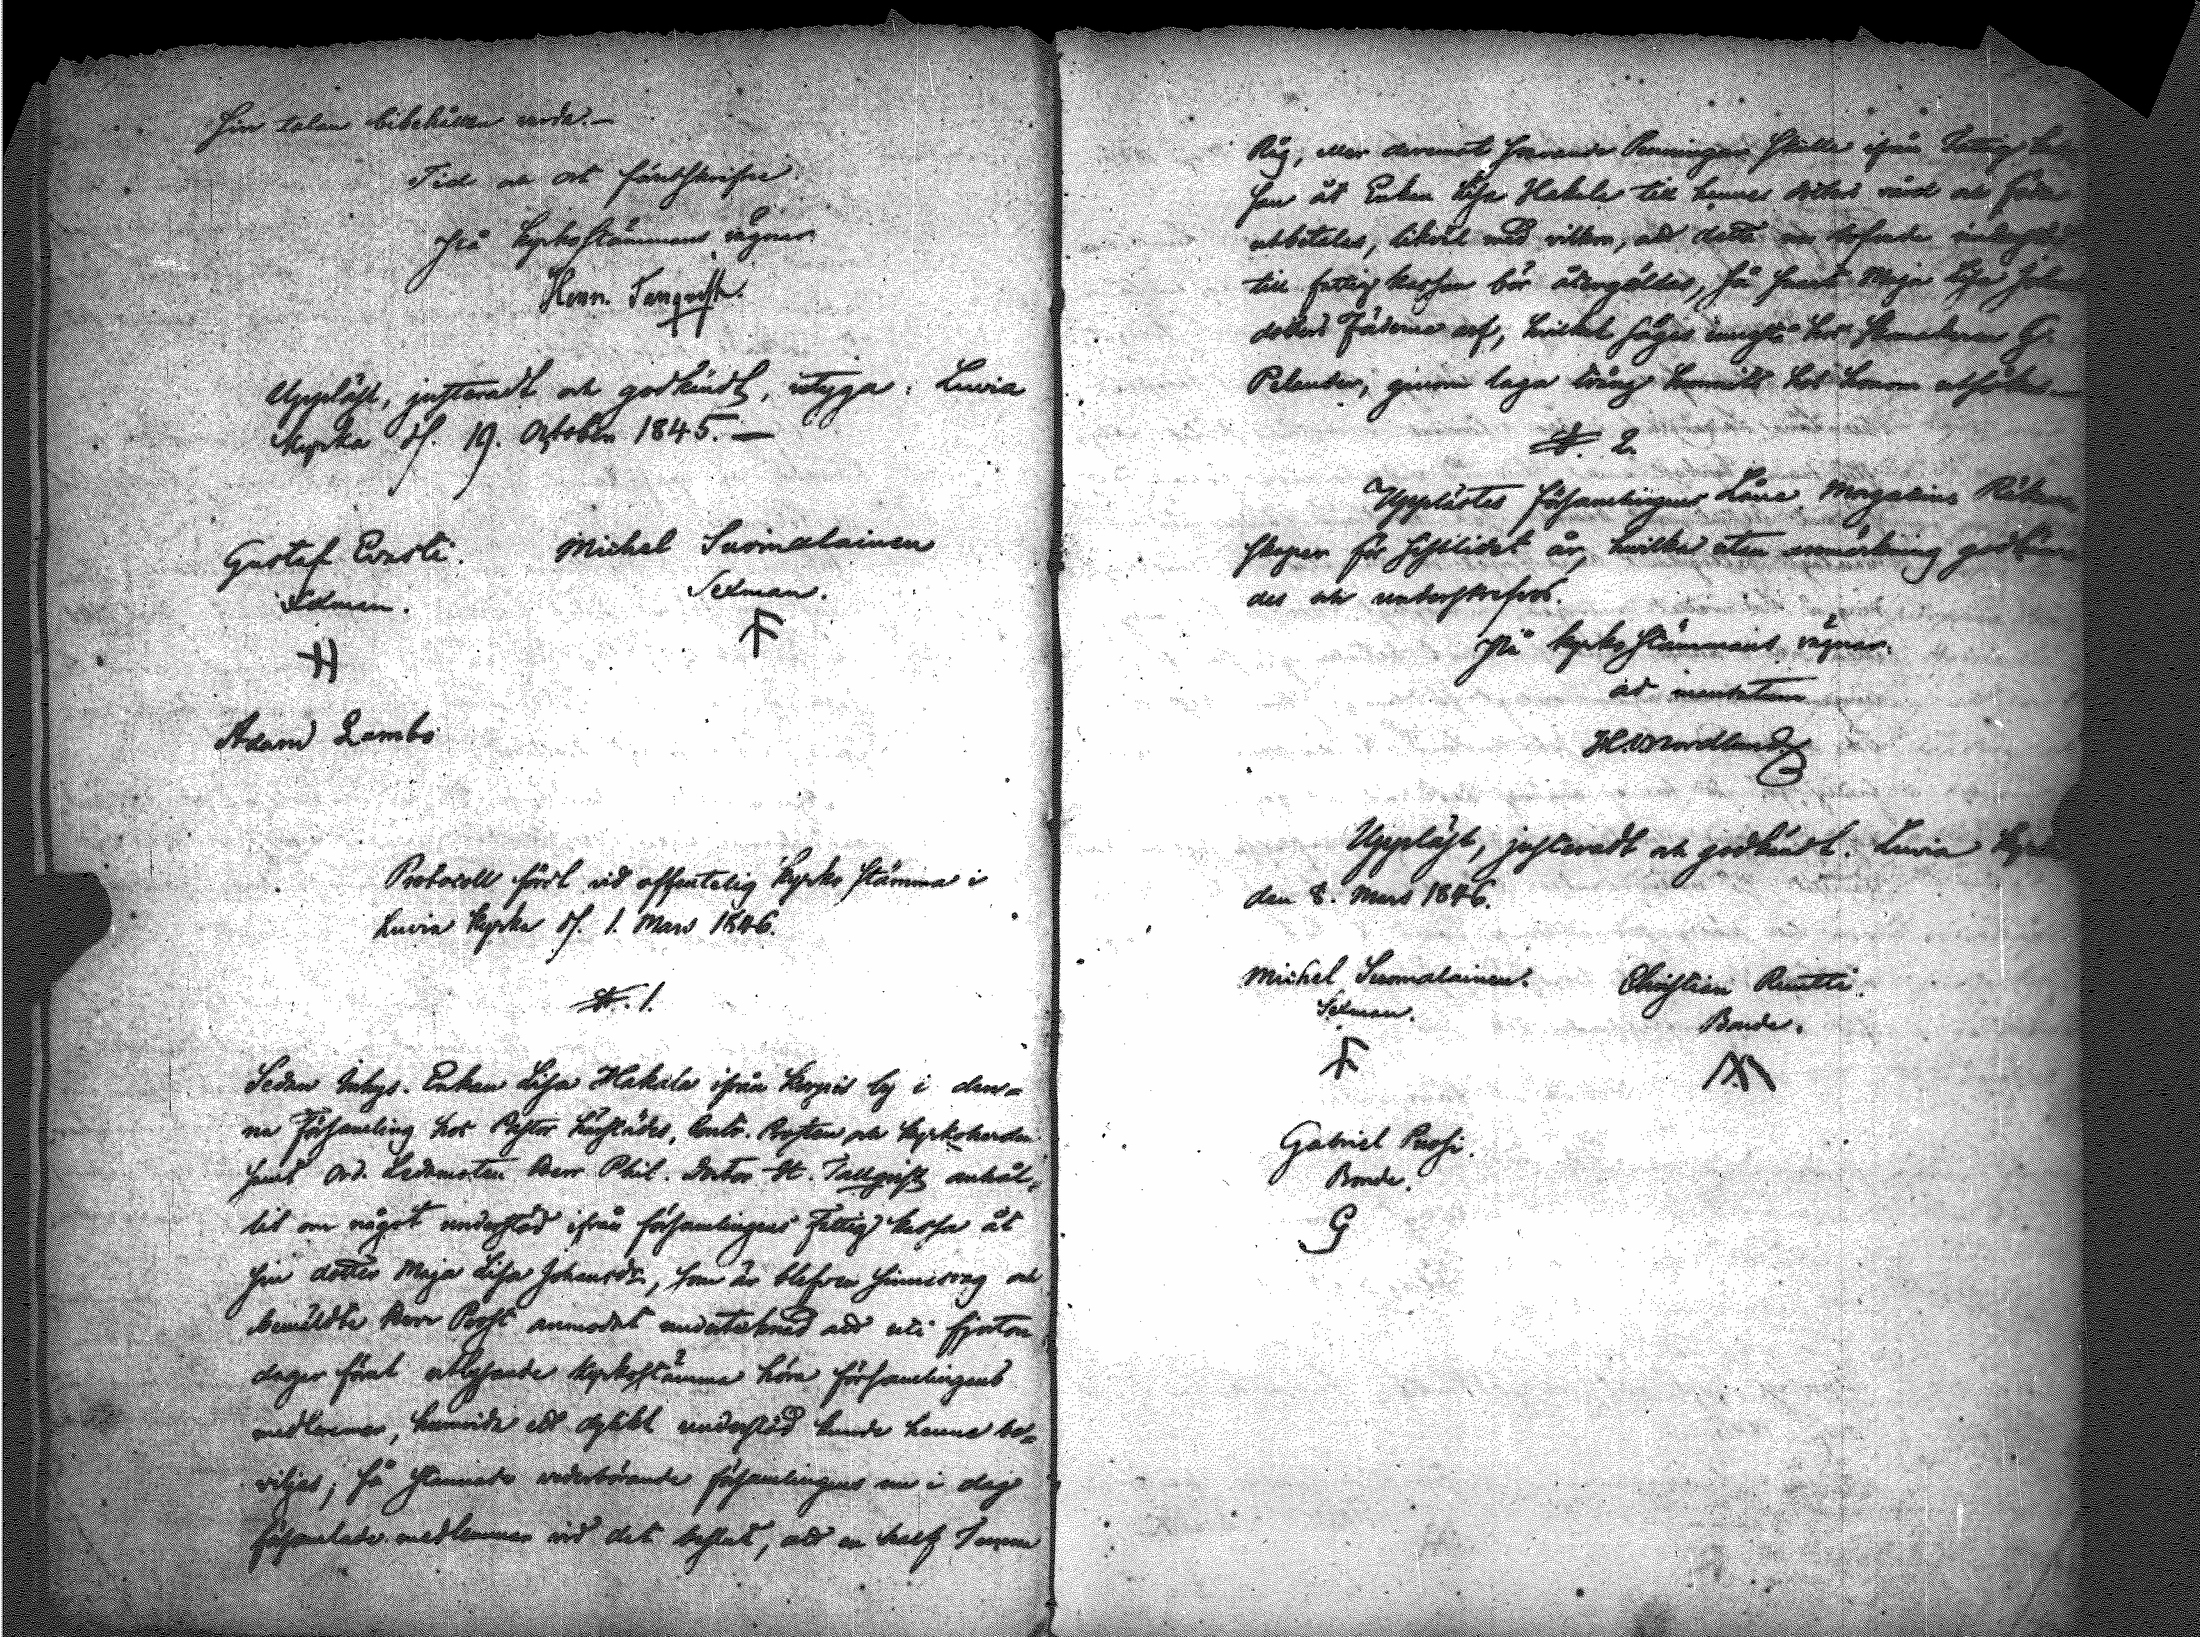 sin talan bibehållen varda.—
Tid och ort förutskrifne
På kyrkostämmans vägnar
Henr. Tanqvist.
Uppläst, justeradt och godkändt, intyga: Luvia
Kyrka d. 19. October 1845.—
Gustaf Evasti. Michel Suomalainen
Sexman. Sexman.
Adam Lambo
Protocoll fördt vid offentelig Kyrko stämma i
Luvia Kyrka d. 1. Mars 1846.
§. 1.
Sedan Inhys. Enkan Lisa Hakala ifrån Korpis by i den-
na Församling hos Pastor Häfstädes, Contr. Prosten och Kyrkoherden
samt Ord. Ledamoten Herr Phil. Doctor H. Tallqvist anhål-
lit om något understöd ifrån församlingens Fattig kassa åt
sin dotter Maja Lisa Johansdr, som är blefven sinnesvag och
bemäldte Herr Prost anmodat undertecknad att uti fjorton
dagar förut utlysande Kyrkostämma höra församlingens
medlemmar, huruvida ett dylikt understöd kunde henne be-
viljas; så stannade vederbörande församlingens nu i dag
församlade medlemmar vid det beslut, att en half Tunna
Råg, eller deremot svarande Penningar skulle ifrån Fattig
san åt Enkan Lisa Hakala till hennes dotters vård och föda
utbetalas, likväl med vilkor, att detta nu
till fattig kassan bör återgäldas, så snart Maja Lisa
dotters Fäderne arf, hvilket säges innestå hos Skomakaren G.
Pelander, genom laga tvång hunnits hos honom utsökas
§. 2.
Upplästes församlingens Låne Magasins Räken
skaper för sistlidet år, hvilka utan anmärkning godkän
des och underskrefvos.
På kyrko stämmans vägnar.
ad mandatum
H. W. Nordlund
Uppläst, justeradt och godkändt. Luvia
den 8. Mars 1846.
Michel Suomalainen. Christian Ruutti.
Sexman. Bonde.
Gabriel Puosi.
Bonde.
G